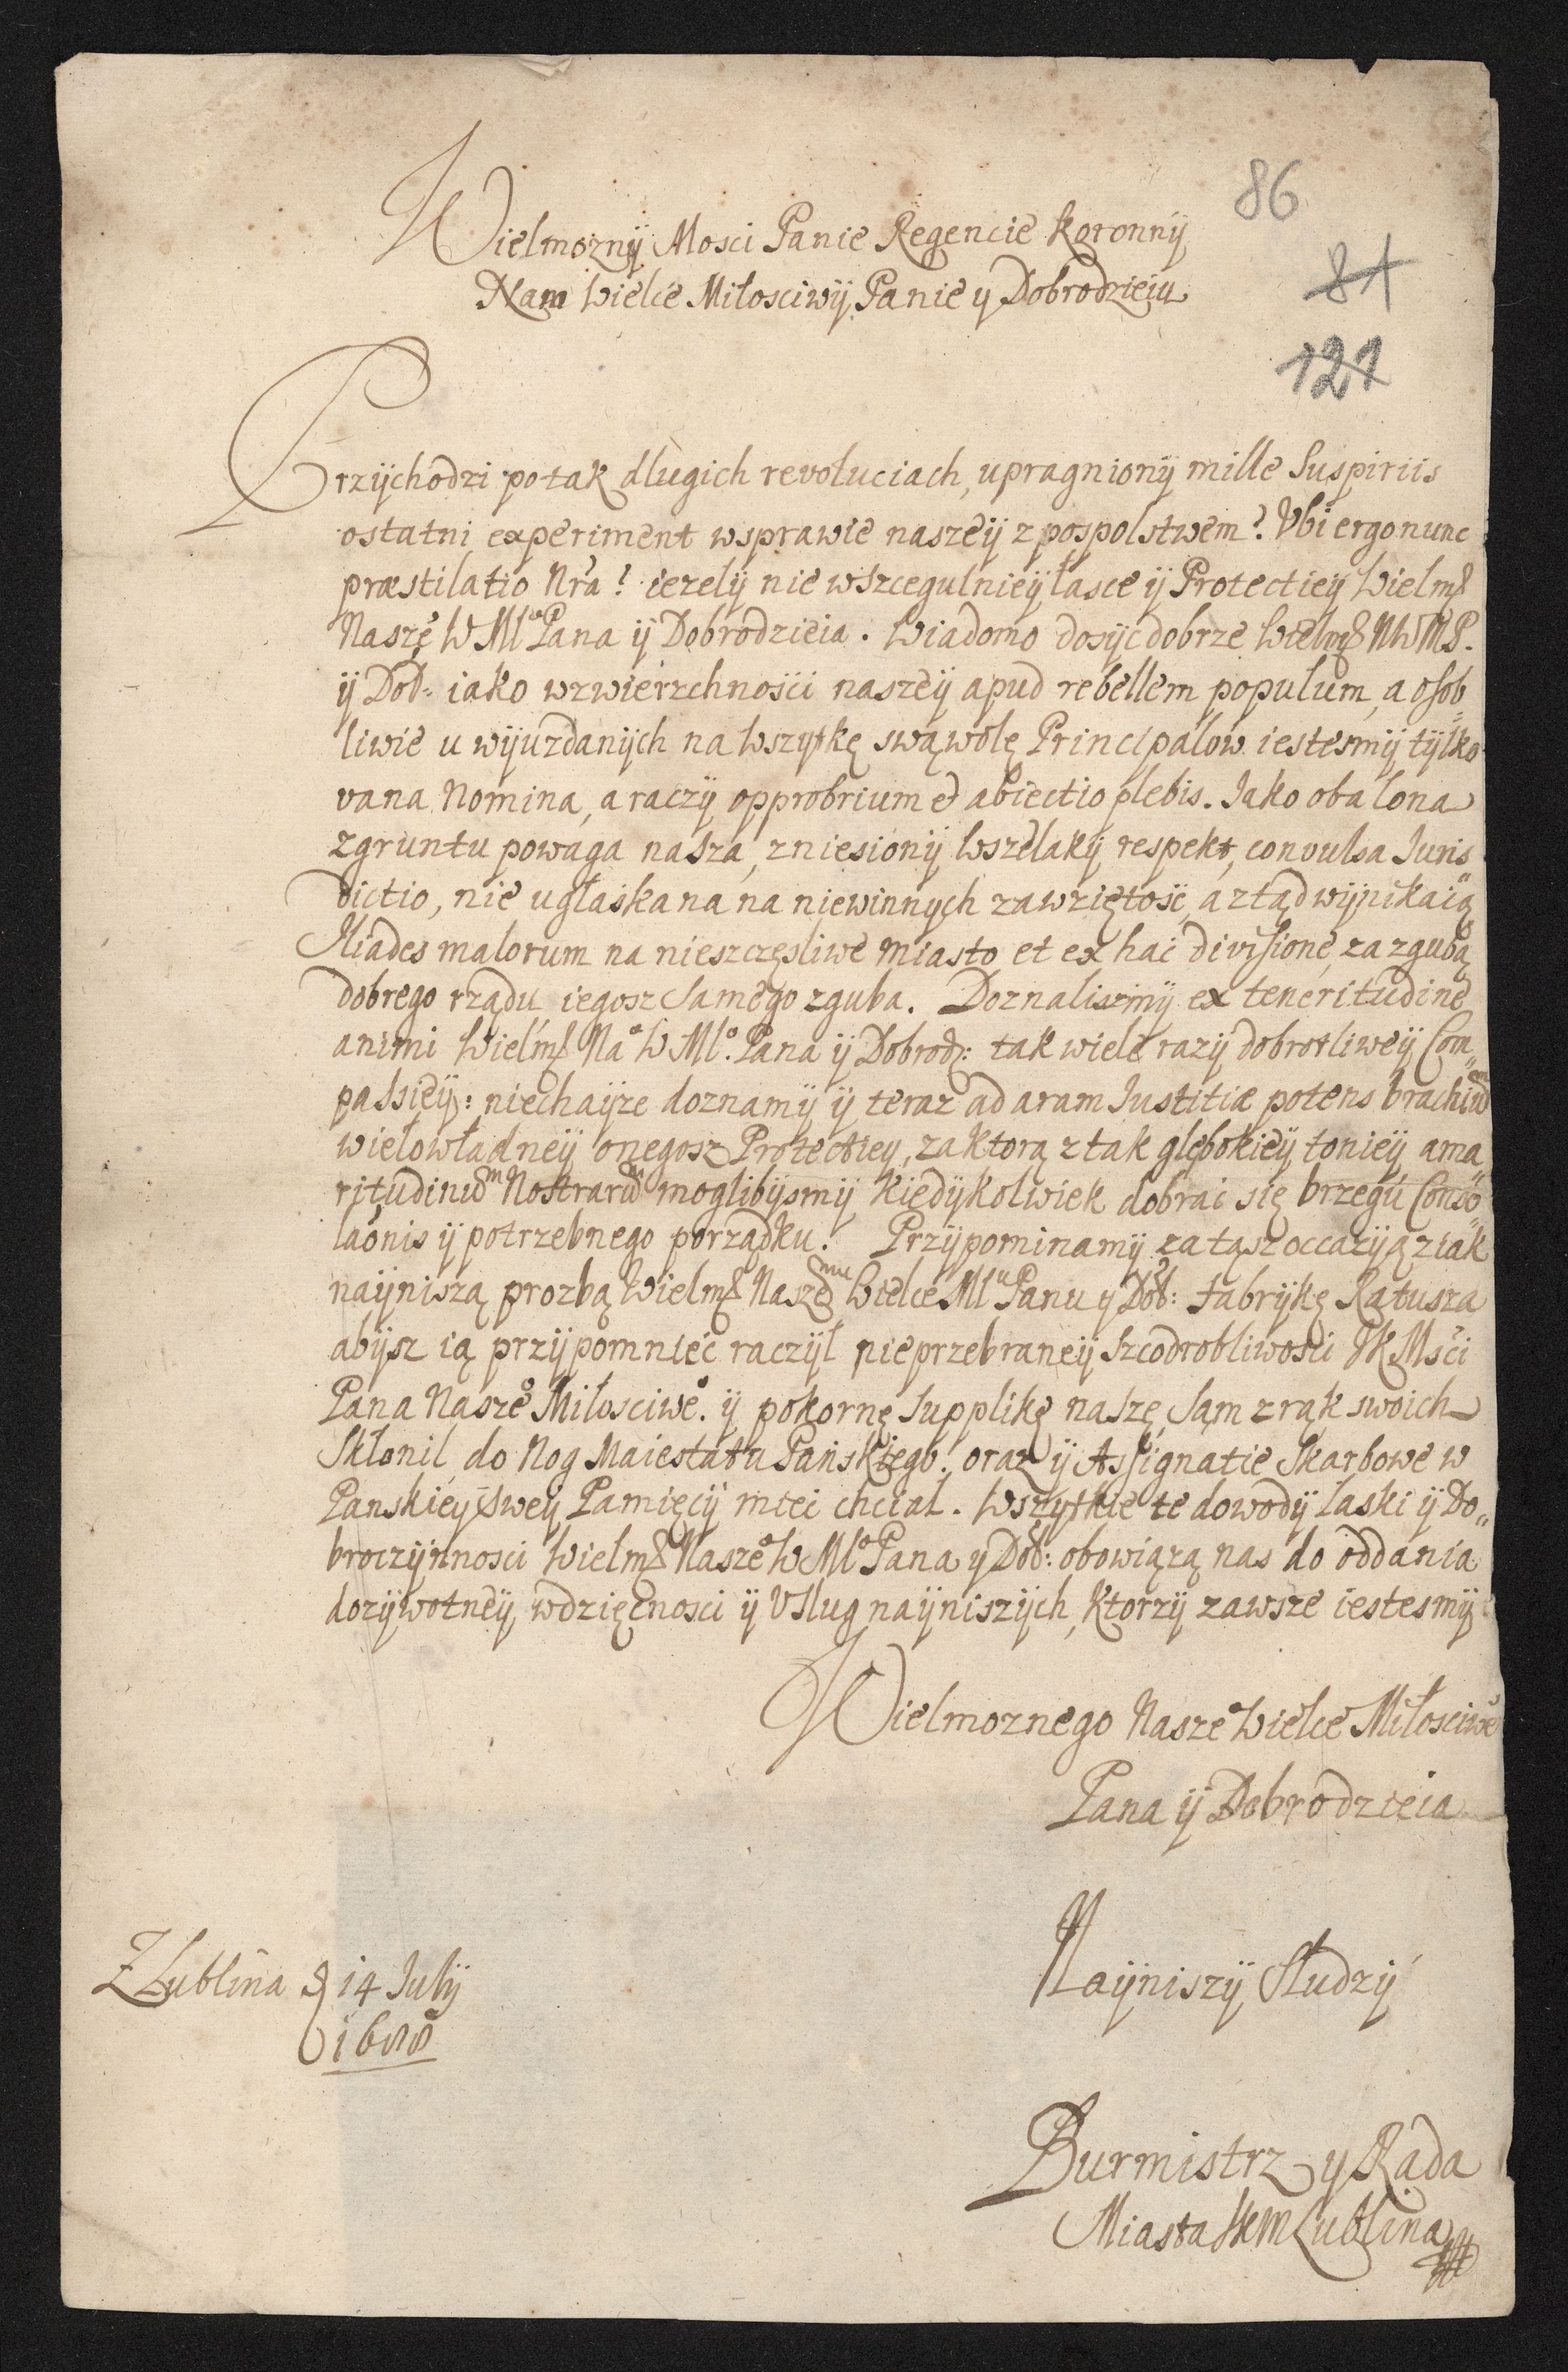 86
Wielmozny Mosci Panie Regencie Koronny
Nam Wielce Miłosciwy Panie y Dobrodzieiu
81
121
Przychodzi potak długich revoluciach, upragniony mille Suspiriis
ostatni experiment wsprawie naszey z pospolstwem? Vbi ergo nunc
præstilatio Nra? iezely nie wszcegulniey łasce y Protectiey Wielmo
Naszeo W Mlo Pana y Dobrodzieia. Wiadomo dosyc dobrze Wielmo NWMP.
y Dob: iako wzwierzchności naszey apud rebellem populum, a osob
liwie u wyuzdanych na wszytkę swąwolę Principałow iestesmy tylko
vana Nomina, a raczy opprobrium et abiectio plebis. Jako obalona
zgruntu powaga nasza, zniesiony wszelaky respekt, convulsa Juris
dictio, nie ugłaskana na niewinnych zawziętość, a ztąd wynikaią
Iliades malorum na nieszczęsliwe miasto et ex hac divisione, za zgubą
dobrego rządu iegosz samego zguba. Doznaliszmy ex teneritudine
animi Wielmo Nao W Mlo. Pana y Dobrod: tak wiele razy dobrotliwey Com„
passiey: niechayze doznamy y teraz ad aram Justitiæ potens brachium
wielowładney onegosz Protectiey, zaktorą z tak głębokiey toniey ama
ritudinum Nostrarum moglibysmy kiedykolwiek dobrai się brzegu Conso
laonis y potrzebnego porządku. Przypominamy zatąsz occazyą ziak
nayniszą prozbą Wielmo Naszemu Wielce Mlu Panu y Dob: fabrykę Ratusza
abysz ią przypomnieć raczył nieprzebraney szcodrobliwości JKMsci
Pana Naszeo Miłosciweo. y pokornę supplikę naszę, sam z rąk swoich
Skłonil do Nog Maiestatu Pańskiego. oraz y Assignatie Skarbowe w
Panskiey swey Pamięcy mieć chciał. Wszytkie te dowody łaski y Do„
broczynnosci Wielmo Naszeo W Mlo Pana y Dob: obowiązą nas do oddania
dozywotney wdzięcnosci y Usług nayniszych, ktorzy zawsze iestesmy
Wielmoznego Naszeo Wielce Miłosciweo
Pana y Dobrodzieia
Z Lublina d 14 July
1688
Nayniszy Słudzy
Burmistrz y Rada
Miasta JKM Lublina